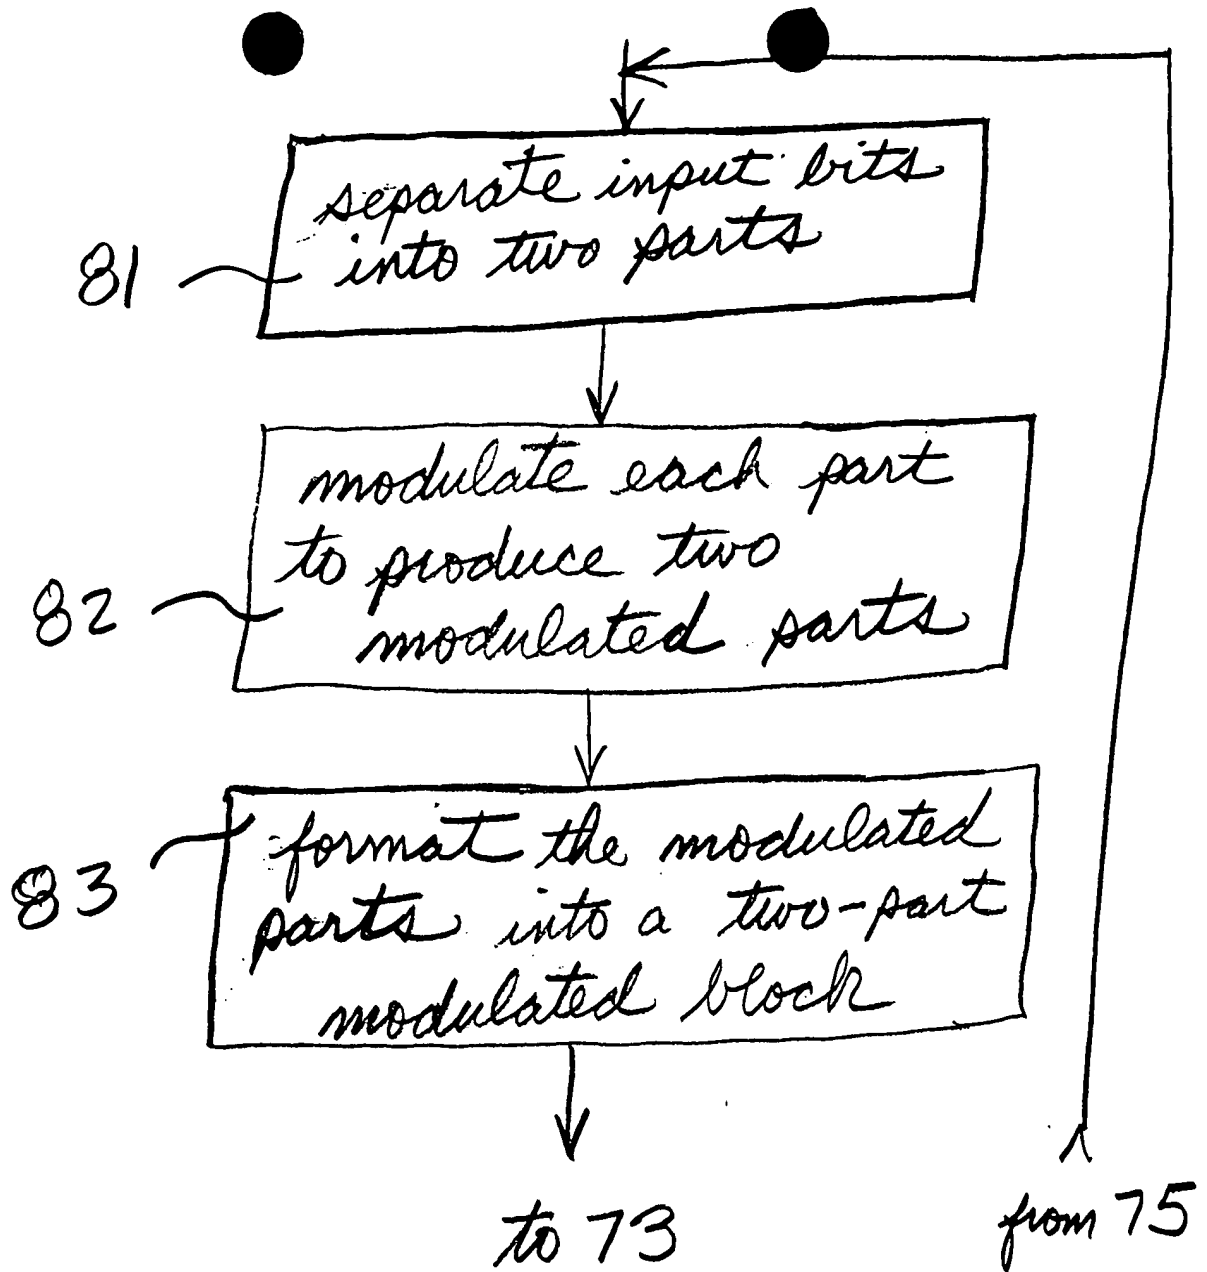 separate input bits
into two parts
81
modulate each part
to produce two
modulated parts
82
format the modulated
parts into a two-part
modulated block
83
to 73
from 75